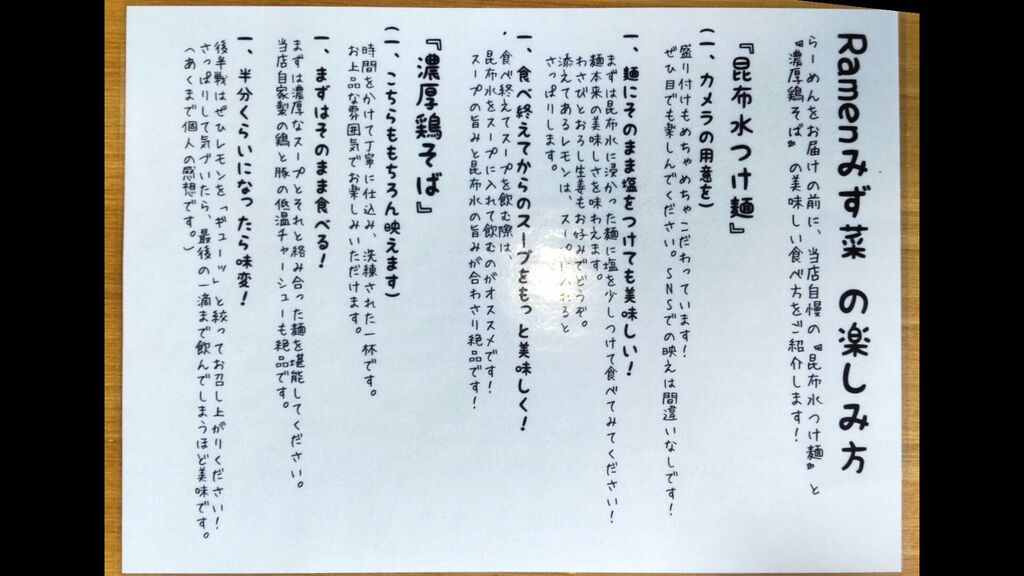 Ramenみず菜 の楽しみ方
らーめんをお届けの前に、当店自慢の『昆布水つけ麺』と
『濃厚鶏そば』の美味しい食べ方をご紹介します！
『昆布水つけ麺』
(一、カメラの用意を)
盛り付けもめちゃめちゃこだわっています！
ぜひ目でも楽しんでください。SNSでの映えは間違いなしです！
一、麺にそのまま塩をつけても美味しい！
まずは昆布水に浸かった麺に塩を少しつけて食べてみてください！
麺本来の美味しさを味わえます。
わさびとおろし生姜もお好みでどうぞ。
添えてあるレモンは、スープに入れると
さっぱりします。
一、食べ終えてからのスープをもっと美味しく！
・食べ終えてスープを飲む際は、
昆布水をスープに入れて飲むのがオススメです！
スープの旨みと昆布水の旨みが合わさり絶品です！
『濃厚鶏そば』
(一、こちらももちろん映えます)
時間をかけて丁寧に仕込み、洗練された一杯です。
お上品な雰囲気でお楽しみいただけます。
一、まずはそのまま食べる！
まずは濃厚なスープとそれと絡み合った麺を堪能してください。
当店自家製の鶏と豚の低温チャーシューも絶品です。
一、半分くらいになったら味変！
後半戦はぜひレモンを「ギューッ」と絞ってお召し上がりください！
さっぱりして気づいたら、最後の一滴まで飲んでしまうほど美味です。
（あくまで個人の感想です。）